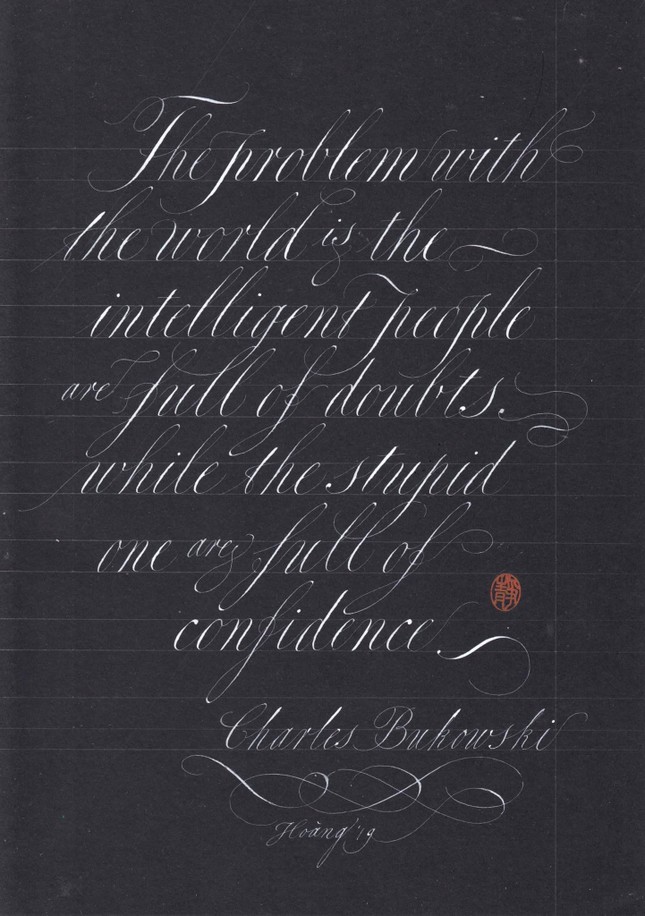 The problem with
the world is the
intelligent people
are full of doubts.
while the stupid
one are full of
confidence.
靜
Charles Bukowski
Hoàng '19